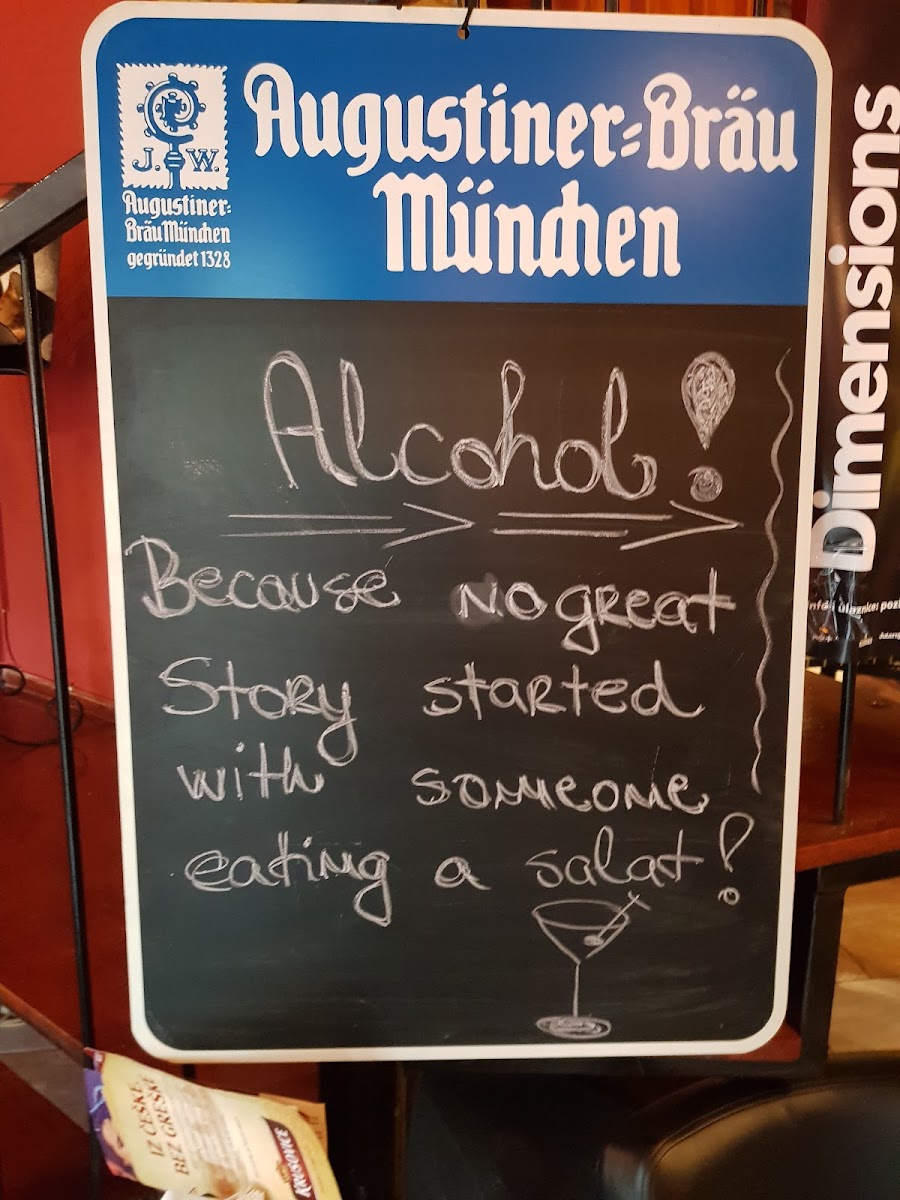 J. W.
Augustiner-
Bräu München
gegründet 1328
Augustiner-Bräu
München
Alcohol!
Because no great
Story started
with someone
eating a salat!
Dimensions
IZ ČEŠKE,
BEZ GREŠKE
KRUŠOVICE